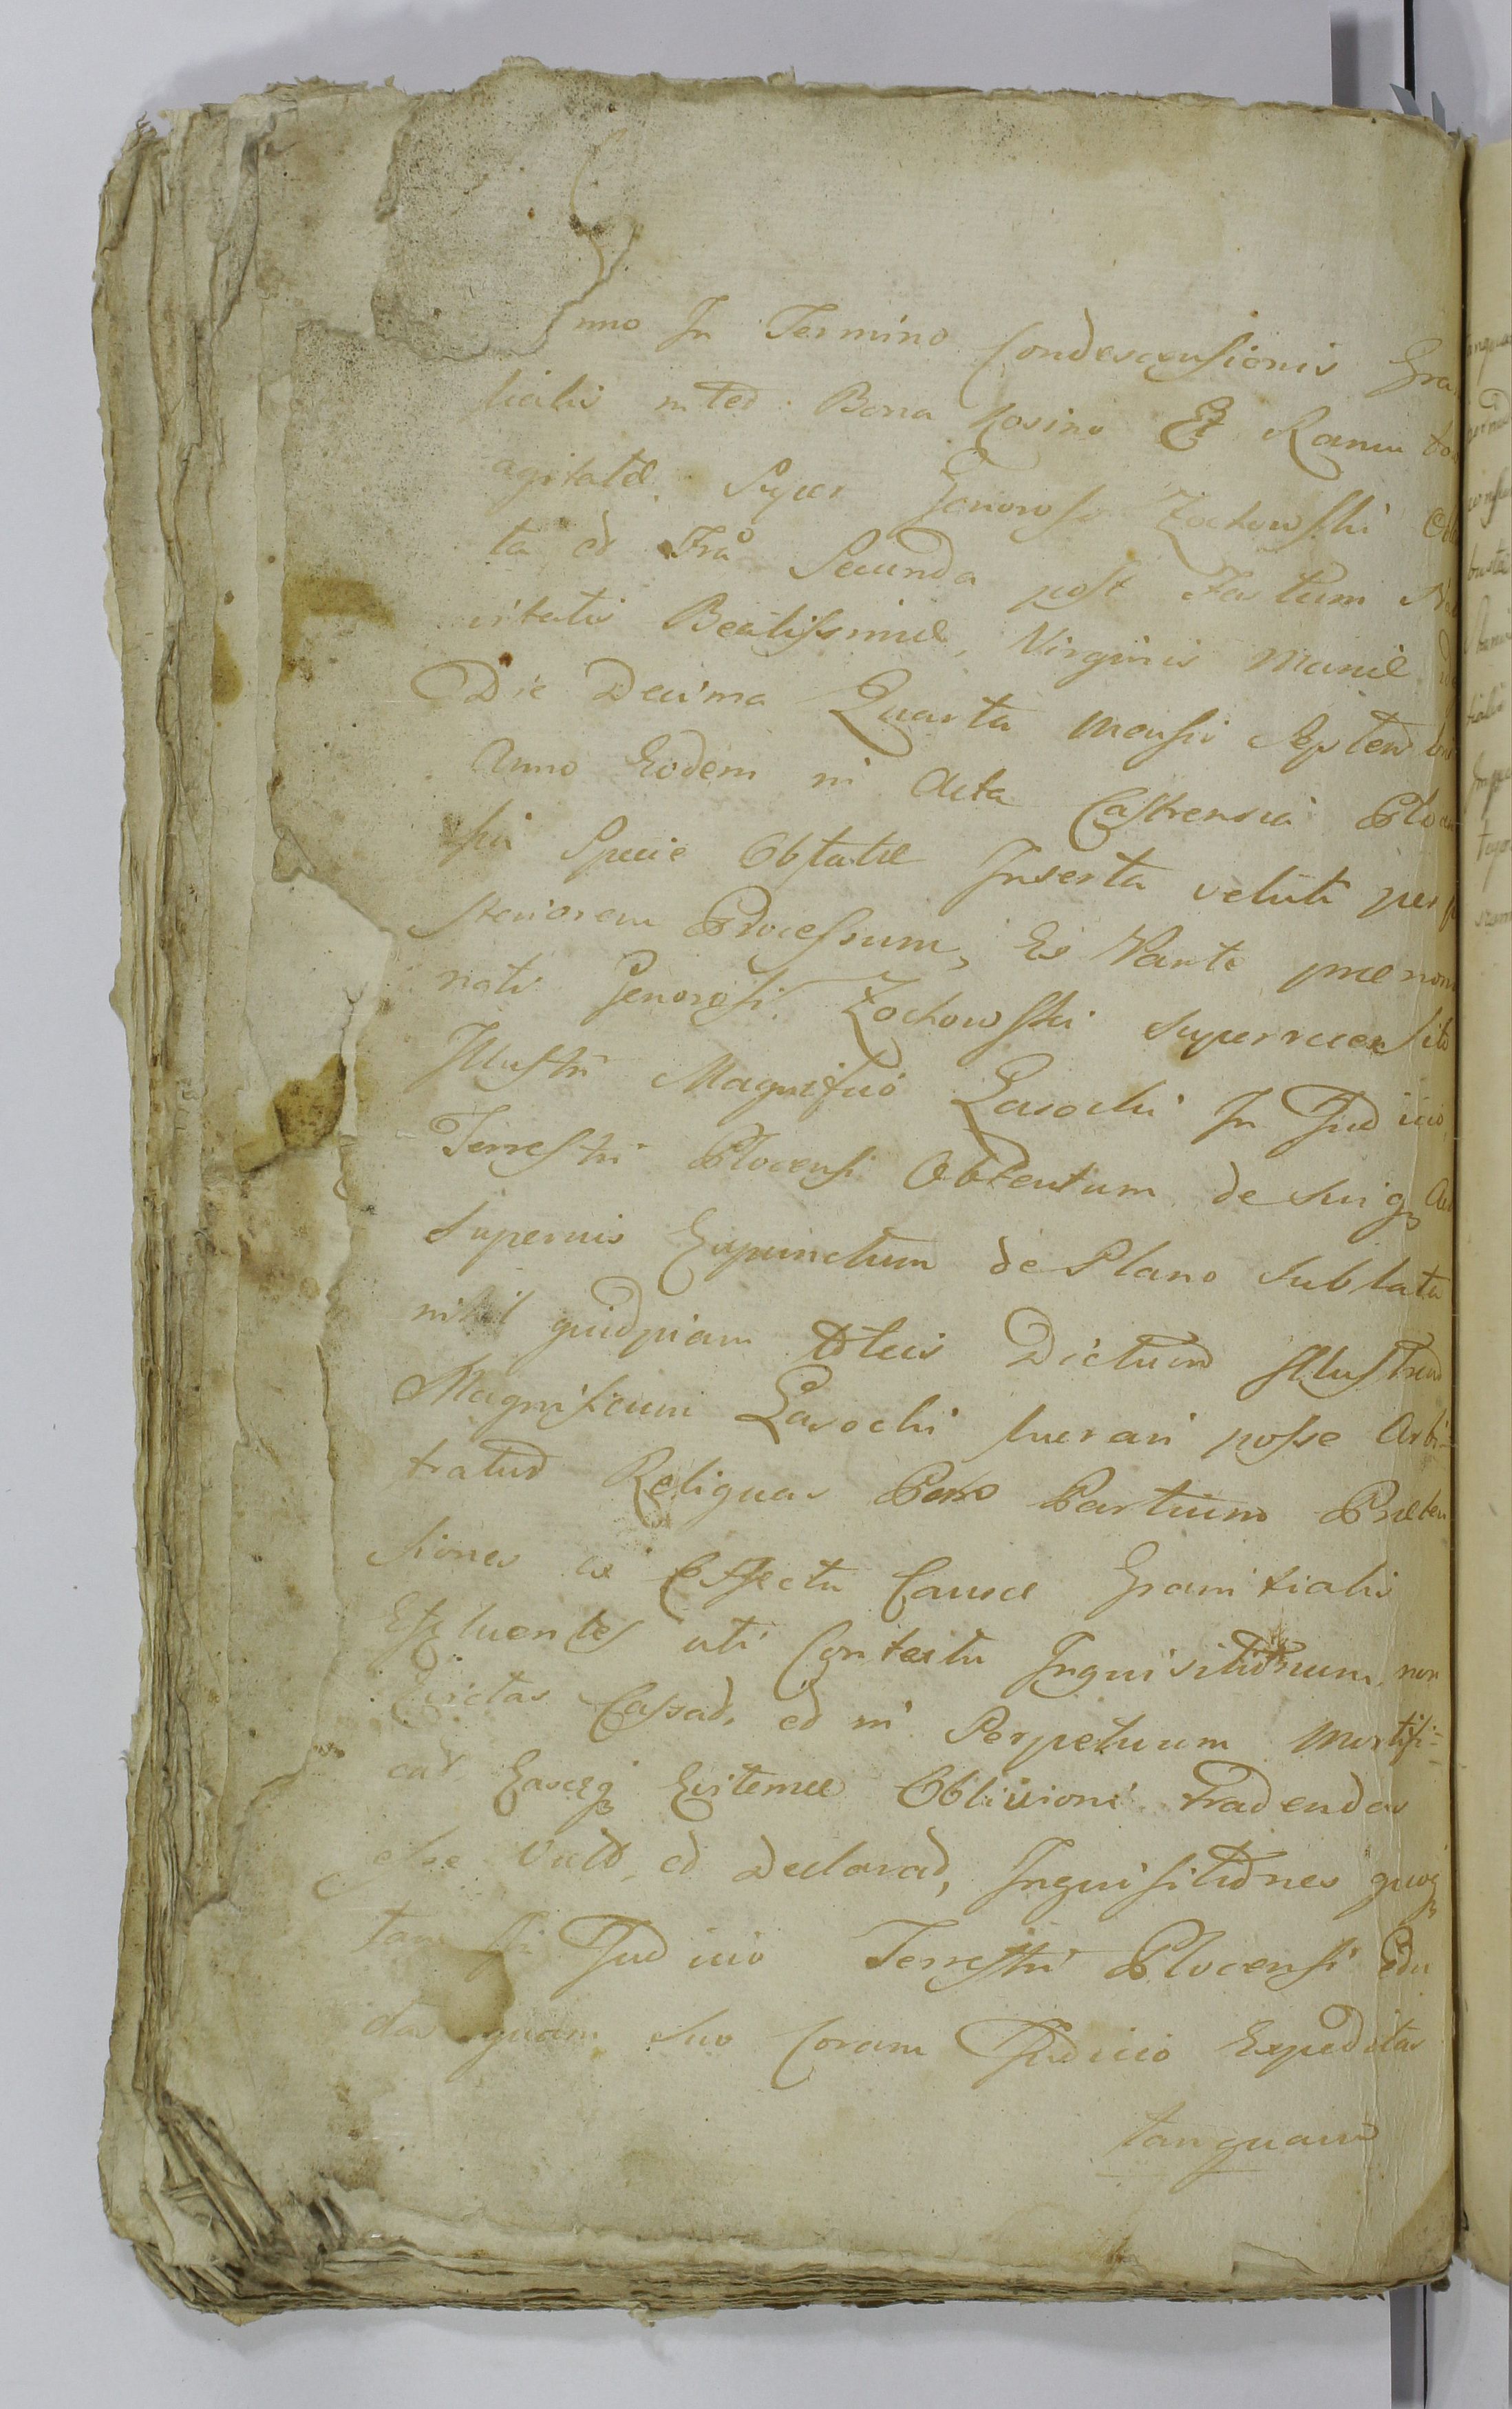 nno In Termino Condescensionis Gra
licialis inted Bona Rosino Et Ramu
agitatæ. Super Generoso Zochowski Ob
ta et Fria Secunda post Festum Na
vitatis Beatissimæ, Virginis Mariæ
Die Decima Quarta Mensis Septemb
Anno Eodem in Acta Castrensia Ploc
sia Specie Oblatæ Inserta veluti per p
steriorem Processum, Ex Parte prænom
nati Generosi Zochowski superrecensito
Illustri Magnifico Lasocki In Judicio
Terrestri Plocensi Obtentum de suisq3 Ac
supernis Expunctum de Plano sublata
nihil quidpiam Dictum Illustrem
Magnificum Lasocki lucrari posse Arbi-
tratur Reliquas Porro Partium Præten
siones ex Effectu Causæ Granicialis
Effluentes uti Contextu Inquisitionum non
dictas Cassad, ed in Perpetuum Mortifi=
cat Easq3 Æxternæ Oblivioni tradendas
esse Vult, ed Declarad, Inquisitiones quoq3
tam In Judicio Terrestri Plocensi Edu
ctas quam suo Coram Judicio Expeditas
tanquam